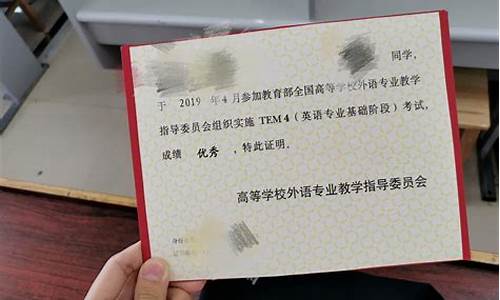 同学,
于 2019 年 4 月参加教育部全国高等学校外语专业教学
指导委员会组织实施 TEM 4（英语专业基础阶段）考试,
成绩 优秀 ，特此证明.
高等学校外语专业教学指导委员会
身份